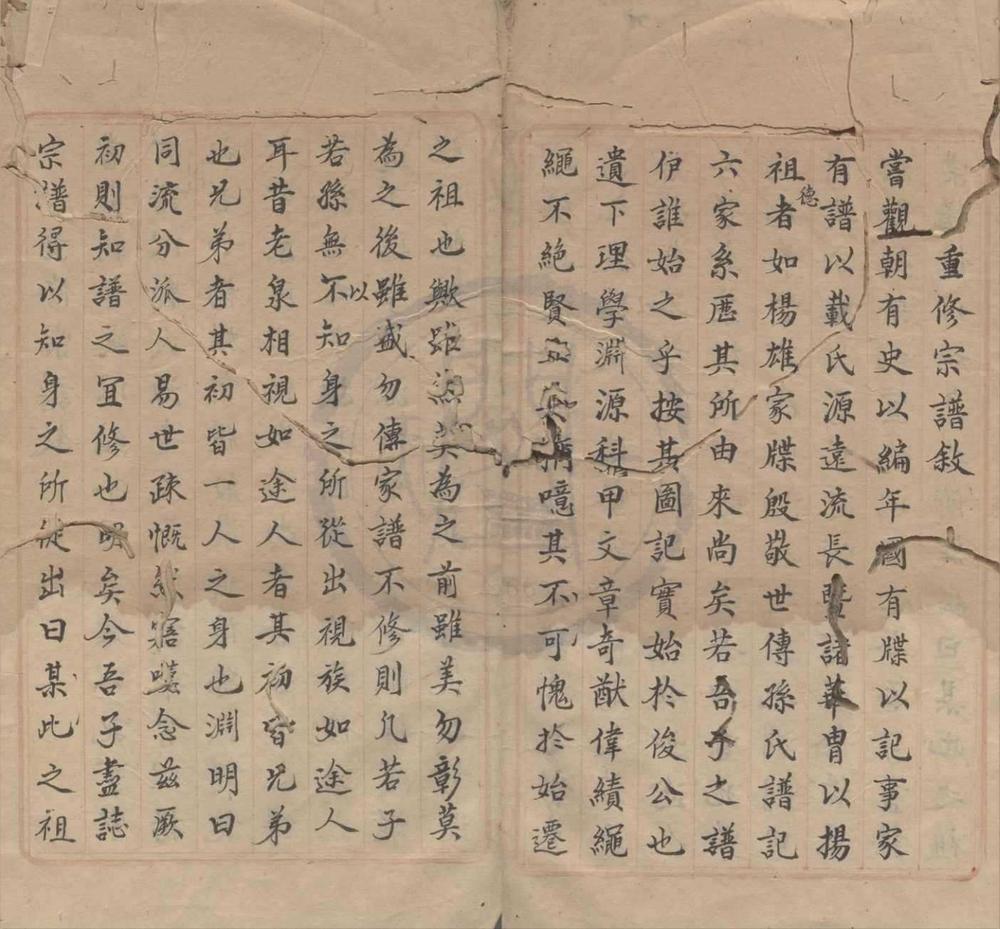 重修宗譜敘
嘗觀朝有史以編年國有牒以記事家
有譜以載氏源遠流長暨諸華胄以揚
祖德者如楊雄家牒殷敬世傳孫氏譜記
六家系歷其所由來尚矣若吾子之譜
伊誰始之乎按其圖記實始於俊公也
遺下理學淵源科甲文章奇猷偉績繩
繩不絕賢噫其不可愧於始遷
之祖也歟雖為之前雖美勿彰莫
為之後雖盛勿傳家譜不修則凡若子
若孫無不以知身之所從出視族如途人
耳昔老泉相視如途人者其初皆兄弟
也兄弟者其初皆一人之身也淵明曰
同流分派人易世疎慨然寤嘆念茲厥
初則知譜之宜修也明矣今吾子盡誌
宗譜得以知身之所從出曰某此之祖